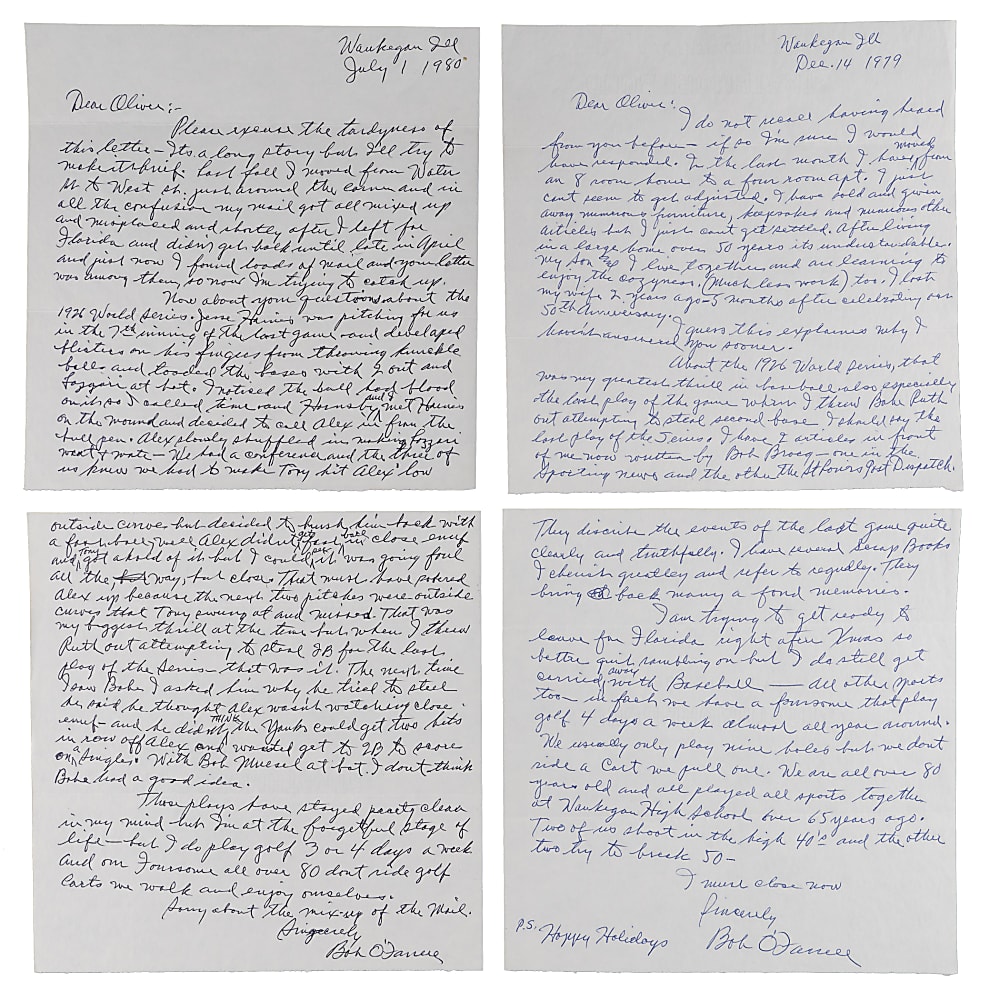 Waukegan Ill
July 1 1980
Dear Oliver:-
Please excuse the tardyness of
this letter - Its a long story but I'll try to
make it brief. Last fall I moved from Water
St to West st. just around the corner and in
all the confusion my mail got all mixed up
and misplaced and shortly after I left for
Florida and didn't get back until late in April
and just now I found loads of mail and your letter
was among them, so now I'm trying to catch up.
Now about your questions about the
1926 World Series. Jesse Haines was pitching for us
in the 7th inning of the last game and developed
blisters on his fingers from throwing knuckle
balls and loaded the bases with 2 out and
Lazzeri at bat. I noticed the ball had blood
on it so I called time and Hornsby and I met Haines
on the mound and decided to call Alex in from the
bull pen. Alex slowly shuffled in making Lazzeri
wait & wait - We had a conference and the three of
us knew we had to make Tony hit Alex' low
outside curves but decided to brush him back with
a fast ball, well Alex didn't get fast ball in close enuf
and Tony got ahold of it but I could see it was going foul
all the way, but close. That must have scared
Alex up because the next two pitches were outside
curves that Tony swung at and missed. That was
my biggest thrill at the time but when I threw
Ruth out attempting to steal 2B for the last
play of the Series - that was it. The next time
I saw Babe I asked him why he tried to steal
he said he thought Alex wasn't watching close
enuf - and he didn't THINK the Yanks could get two hits
in row off Alex and wanted get to 2B to score
on a single. With Bob Muesel at bat, I dont think
Babe had a good idea.
Those plays have stayed pretty clear
in my mind but I'm at the forgetful stage of
life - but I do play golf 3 or 4 days a week
and our Foursome all over 80 dont ride golf
carts we walk and enjoy ourselves.
Sorry about the mix-up of the Mail.
Singcerely
Bob O'Farrell
Waukegan Ill
Dec. 14 1979
Dear Oliver:
I do not recall having heard
from you before - if so I'm sure I would
have responded. In the last month I have moved from
an 8 room home to a four room apt. I just
cant seem to get adjusted. I have sold and given
away numerous furniture, keepsakes and numerous other
articles but I just cant get settled. After living
in a large home over 50 years its understandable.
My son and I live together and are learning to
enjoy the cozyness. (Much less work) too. I lost
my wife 2 years ago - 5 months after celebrating our
50th Anniversary.
I guess this explaines why I
havent answered you sooner.
About the 1926 World Series, that
was my greatest thrill in baseball also especially
the last play of the game when I threw Babe Ruth
out attempting to steal second base. I should say the
last play of the Series. I have 2 articles in front
of me now written by Bob Broeg - one in the
Sporting news and the other the St Louis Post Dispatch.
They discribe the events of the last game quite
clearly and truthfully. I have several Scrap Books
I cherish greatley and refer to regudly. They
bring back many a fond memories.
I am trying to get ready to
leave for Florida right after Xmas so
better quit rambling on but I do still get
carried away with Baseball - All other sports
too - in fact we have a foursome that play
golf 4 days a week almost all year around.
We usually only play nine holes but we dont
ride a cart we pull one. We are all over 80
years old and all played all sports together
at Waukegan High School over 65 years ago.
Two of us shoot in the high 40's and the other
two try to break 50 -
I must close now
Sincerely
P.S. Happy Holidays Bob O'Farrell